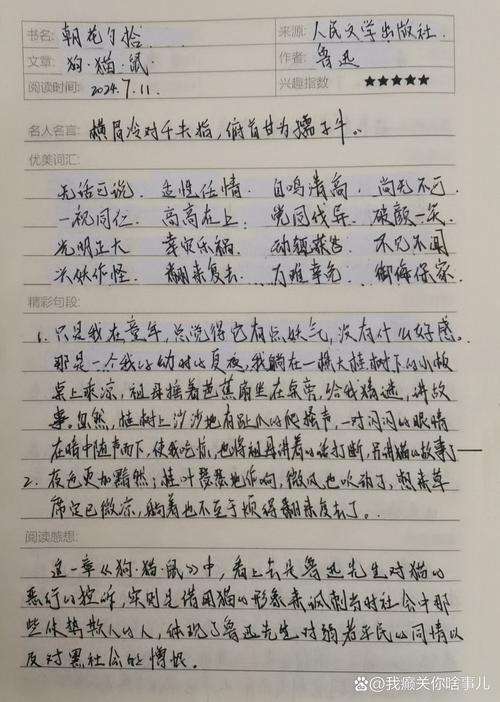 书名: 朝花夕拾 来源: 人民文学出版社.
文章: 狗·猫·鼠. 作者: 鲁迅
阅读时间: 2024.7.11. 兴趣指数 ★★★★★
名人名言: 横眉冷对千夫指,俯首甘为孺子牛。
优美词汇:
无话可说 适性任情 自鸣清高 尚无不可
一视同仁 高高在上 党同伐异 破颜一笑
光明正大 幸灾乐祸 不见不闻
兴妖作怪 翻来复去 万难幸免 御侮保家
精彩句段:
1. 只是我在童年,总觉得它有点妖气,没有什么好感。
那是一个我的幼时的夏夜,我躺在一株大桂树下的小板
桌上乘凉,祖母摇着芭蕉扇坐在桌旁,给我猜谜,讲故
事。忽然,桂树上沙沙地有趾爪的爬搔声,一对闪闪的眼睛
在暗中随声而下,使我吃惊,也将祖母讲着的话打断,另讲猫的故事了——
2. 夜色更加黯然;桂叶瑟瑟地作响,微风也吹动了,想来草
席定已微凉,躺着也不至于烦得翻来复去了。
阅读感想:
这一章《狗·猫·鼠》中,看上去是鲁迅先生对猫的
恶行的控诉,实则是借用猫的形象来讽刺当时社会中那
些仗势欺人的人,体现了鲁迅先生对弱者平民的同情以
及对黑社会的憎恨。
@我癫关你啥事儿